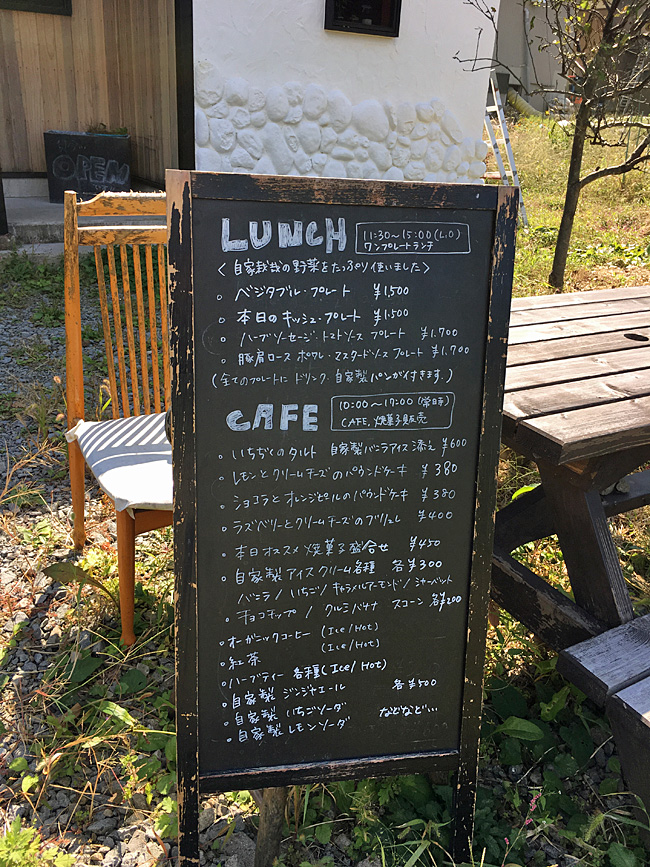 OPEN
LUNCH
11:30〜15:00(L.O)
ワンプレートランチ
<自家栽哉の野菜をたっぷり使いました>
。ベジタブル・プレート ¥1,500
。本日のキッシュ・プレート ¥1,500
。ハーブソーセージ・トマトソース プレート ¥1,700
。豚肩ロース ポワレ・マスタードソース プレート ¥1,700
(全てのプレートに ドリンク・自家製パンが付きます。)
CAFE
10:00〜17:00(営日時)
CAFE, 焼菓子販売
・いちぢくのタルト 自家製バニラアイス添え ¥600
・レモンとクリームチーズのパウンドケーキ ¥380
・ショコラとオレンジピールのパウンドケーキ ¥380
・ラズベリーとクリームチーズのブリュレ ¥400
・本日オススメ 焼菓子盛合せ ¥450
・自家製アイスクリーム各種 各¥300
バニラ/いちご/キャラメルアーモンド/シャーベット
・チョコチップ/クルミバナナ スコーン 各¥200
・オーガニックコーヒー (Ice/Hot)
・紅茶 (Ice/Hot)
・ハーブティー 各種(Ice/Hot)
・自家製 ジンジャエール 各¥500
・自家製 いちごソーダ などなど…
・自家製 レモンソーダ